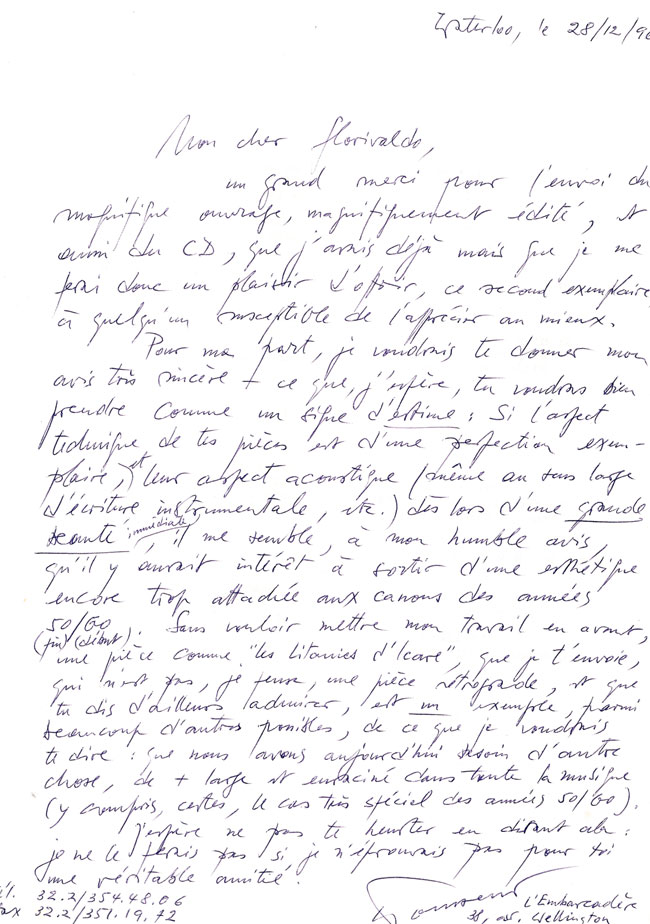 Waterloo, le 28/12/96
Mon cher Florivaldo,
un grand merci pour l'envoi du
magnifique ouvrage, magnifiquement édité, et
aussi du CD, que j'avais déjà mais que je me
ferai donc un plaisir d'offrir, ce second exemplaire,
à quelqu'un susceptible de l'apprécier au mieux.
Pour ma part, je voudrais te donner mon
avis très sincère + ce que, j'espère, tu voudras bien
prendre comme un signe d'estime : Si l'aspect
technique de tes pièces est d'une perfection exem-
plaire, et leur aspect acoustique (même au sens large
d'écriture instrumentale, etc.) dès lors d'une grande
beauté immédiate, il me semble, à mon humble avis,
qu'il y aurait intérêt à sortir d'une esthétique
encore trop attachée aux canons des années
50/60
(fin) (début). Sans vouloir mettre mon travail en avant,
une pièce comme "les Litanies d'Icare", que je t'envoie,
qui n'est pas, je pense, une pièce rétrograde, et que
tu dis d'ailleurs admirer, est un exemple, parmi
beaucoup d'autres possibles, de ce que je voudrais
te dire : que nous avons aujourd'hui besoin d'autre
chose, de + large et enraciné dans toute la musique
(y compris, certes, le cas très spécial des années 50/60).
J'espère ne pas te heurter en disant cela :
je ne le ferais pas si je n'éprouvais pas pour toi
une véritable amitié.
32.2/354.48.06
32.2/351.19.72
L'Embarcadère
38, av. Wellington